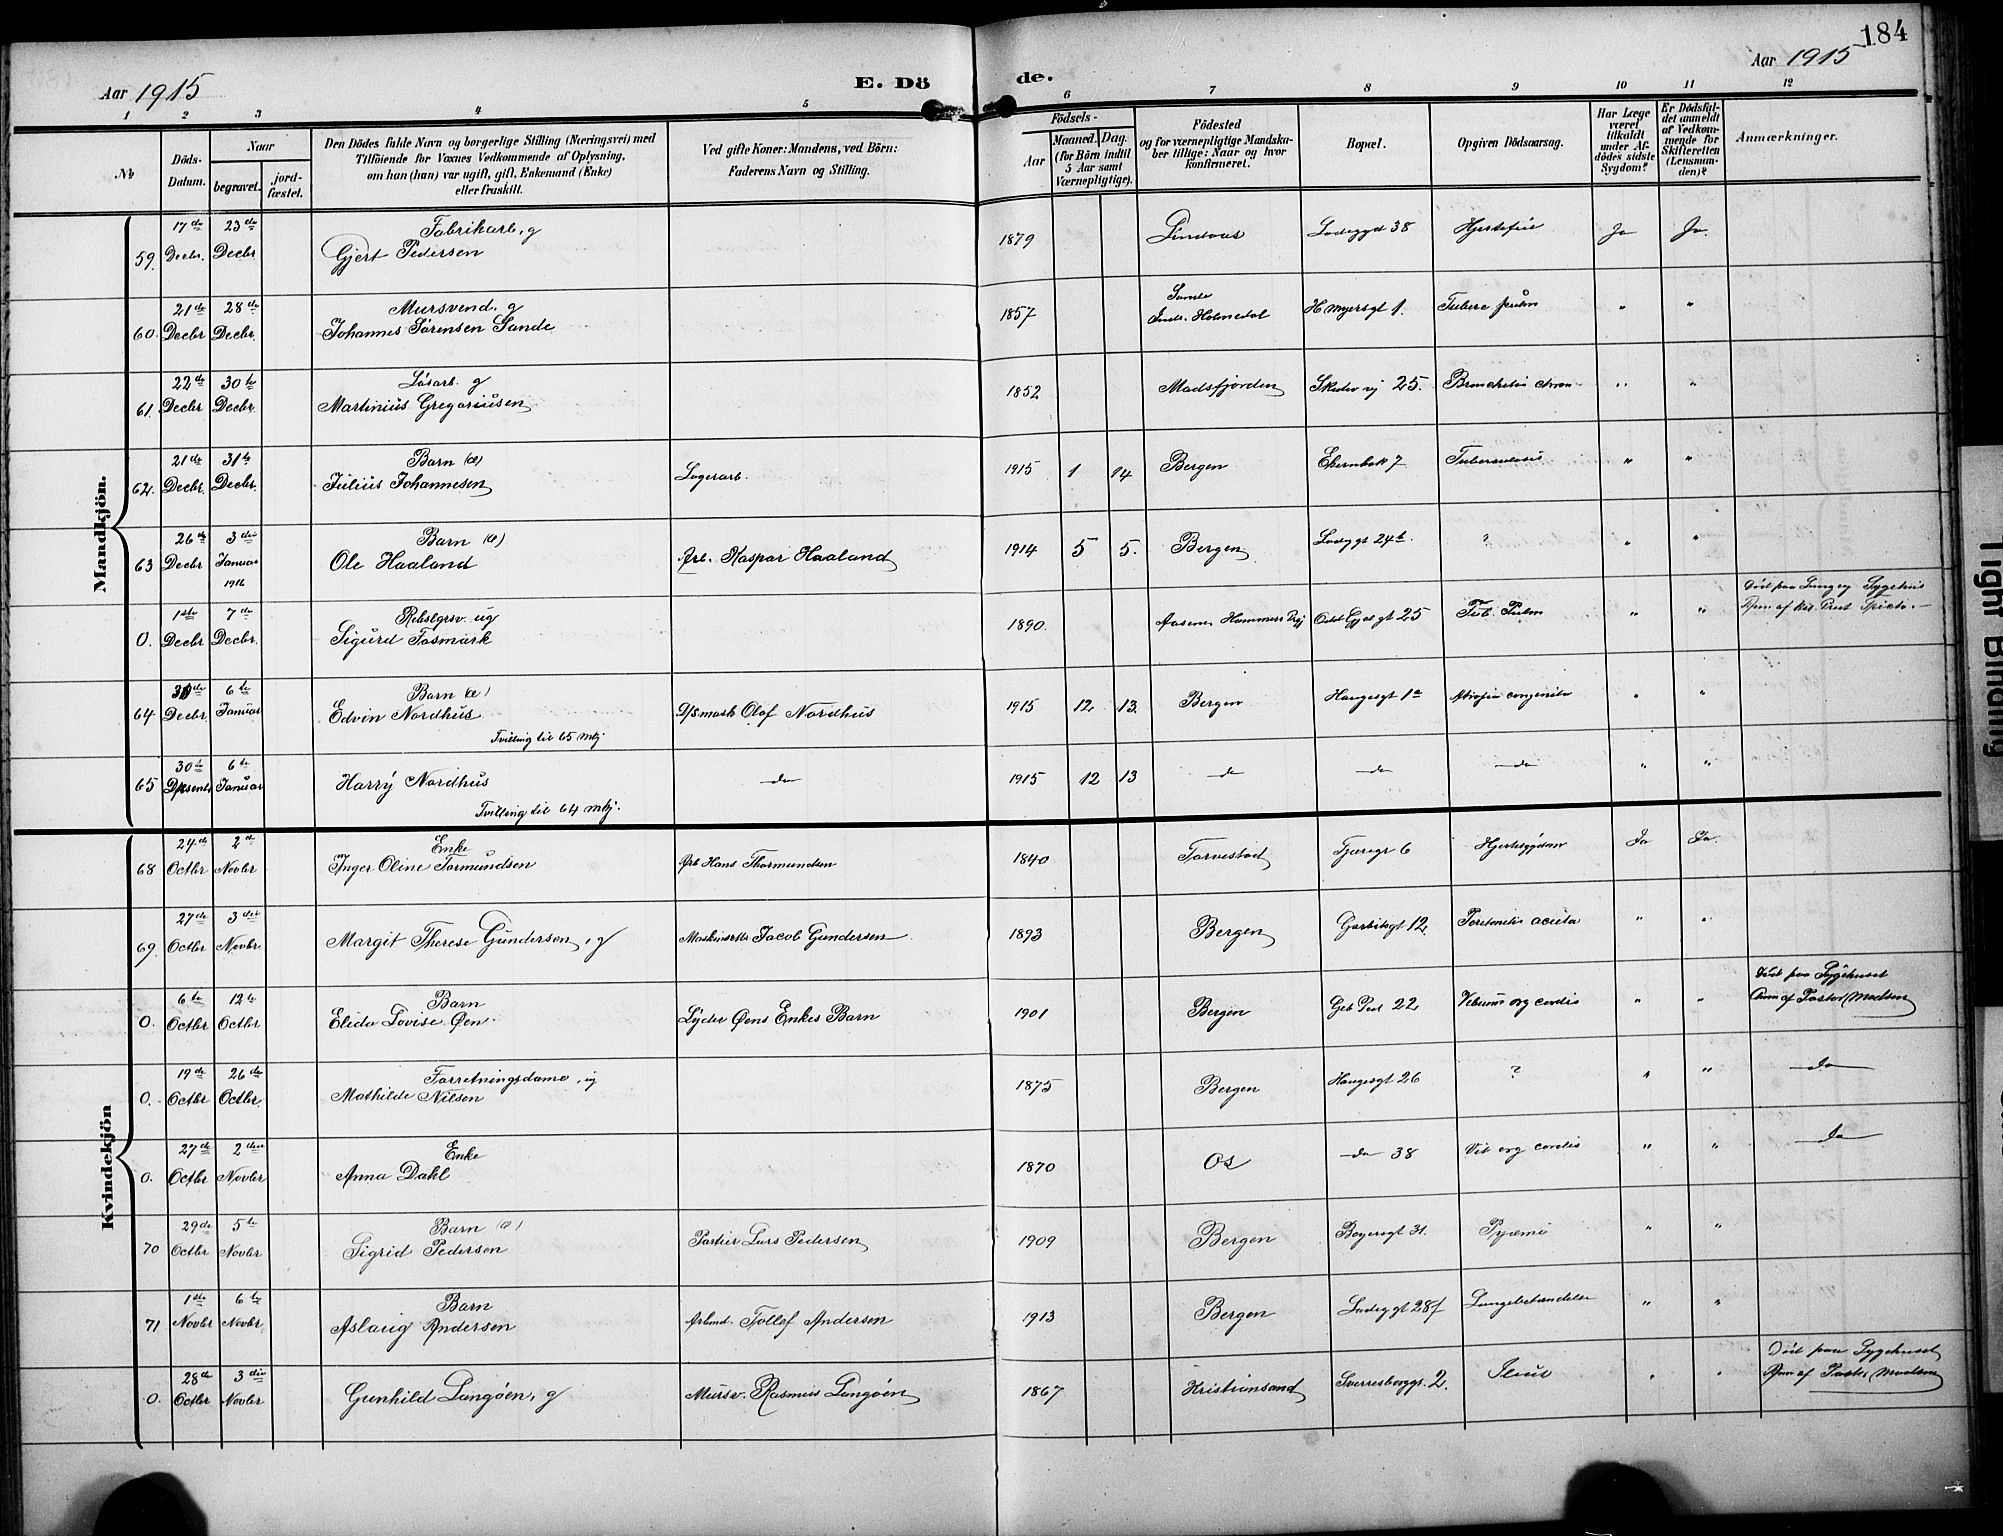 184
Aar 1915
E. Dö
de.
Aar 1915
1 2 3 4 5 6 7 8 9 10 11 12
No
Döds-
Datum.
Naar
begravet.
jord-
fæstet.
Den Dödes fulde Navn og borgerlige Stilling (Næringsvei) med
Tilföiende for Voxnes Vedkommende af Oplysning,
om han (hun) var ugift, gift, Enkemand (Enke)
eller fraskilt.
Ved gifte Koner: Mandens, ved Börn:
Faderens Navn og Stilling.
Födsels-
Aar
Maaned. Dag.
(for Börn indtil
5 Aar samt
Værnepligtige).
Födested
og for værnepligtige Mandska-
ber tillige: Naar og hvor
konfirmeret.
Bopæl.
Opgiven Dödsaarsag.
Har Læge
været
tilkaldt
under Af-
dödes sidste
Sygdom?
Er Dödsfal-
det anmeldt
af Vedkom-
mende for
Skifteretten
(Lensman-
den)?
Anmærkninger.
Mandkjön.
59. 17de Decbr. 23de Decbr Fabrikarb, g
Gjert Pedersen 1879 Lindaas Ladeggd 38 Hjertefeil Ja Ja.
60. 21de Decbr 28de Decbr. Mursvend. g
Johannes Sørensen Sande 1857 Indr. Holmedal H. Myersgt 1. Tuberc pulm " "
61. 22de Decbr 30te Decbr. Løsarb. g
Martinius Gregoriusen 1852 Madsfjorden 25. " "
62. 21de Decbr. 31te Decbr. Barn (æ)
Julius Johannesen Lagerarb. 1915 1 14 Bergen 7 Tuberculosis " "
63 26de Decbr 3die Januar 1916 Barn (æ)
Ole Haaland Arb. Kaspar Haaland 1914 5 5. Bergen Ladeggt 24b. ? " "
0. 1ste Decbr 7de Decbr. Rebslgrsv. ug
Sigurd Fosmark 1890. 25 Tub. Pulm " "
Død paa Lungeg Sygehus
64 30de Decbr 6te Januar Barn (æ)
Edvin Nordhus
Tvilling til 65 mkj. Olaf Nordhus 1915 12 13. Bergen Haugesgt 1a Atrofia congenita " "
65 30te 6te Januar
Harry Nordhus
Tvilling til 64 mkj. do 1915 12 13 do do do " "
Kvindekjön
68 24de Octbr 2de Novbr Enke
Inger Oline Tormundsen Arb Hans Thormundsen 1840 Torvestad Tjæregr 6 Hjertesygdom Ja Ja.
69. 27de Octbr 3die Novbr.
Margit Therese Gundersen, g Jacob Gundersen 1893 Bergen 12. Peritonitis acuta " "
0. 6te Octbr 12te Octbr Barn
Elida Lovise Øen. Lyder Øens Enkes Barn 1901 Bergen 22 Vitium org cordis " "
Død paa Sygehuset
Anm af Pastor Madsen
0. 19de Octbr 26de Octbr. Forretningsdame, ug
Mathilde Nilsen 1875 Bergen Haugesgt 26 ? " " do
0. 27de Octbr 2den Novbr Enke
Anna Dahl 1870 Os do 38 Vit org cordis " " do
70 29de Octbr 5te Novbr Barn (æ)
Sigrid Pedersen Portier Lars Pedersen 1909 Bergen 31. Pyæmi " "
71 1ste Novbr 6te Novbr. Barn
Aslaug Andersen Arbmd. Tollef Andersen 1913 Bergen Ladeggt 28f Lungebetændelse " "
0. 28de Octbr 3die Novbr
Gunhild Langøen, g Mursv. Rasmus Langøen 1867 Kristiansand Sverresborggt. 2. Ileus " "
Død paa Sygehuset
Anm af Pastor Madsen
Tight Binding